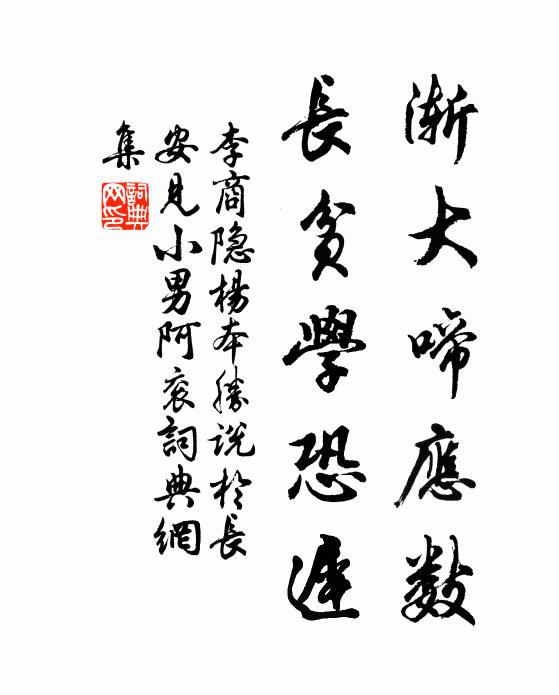 漸大啼應數
長貧學恐遲
李商隐楊本勝説於長
安見小男阿衮詞典網
集
詞典网印